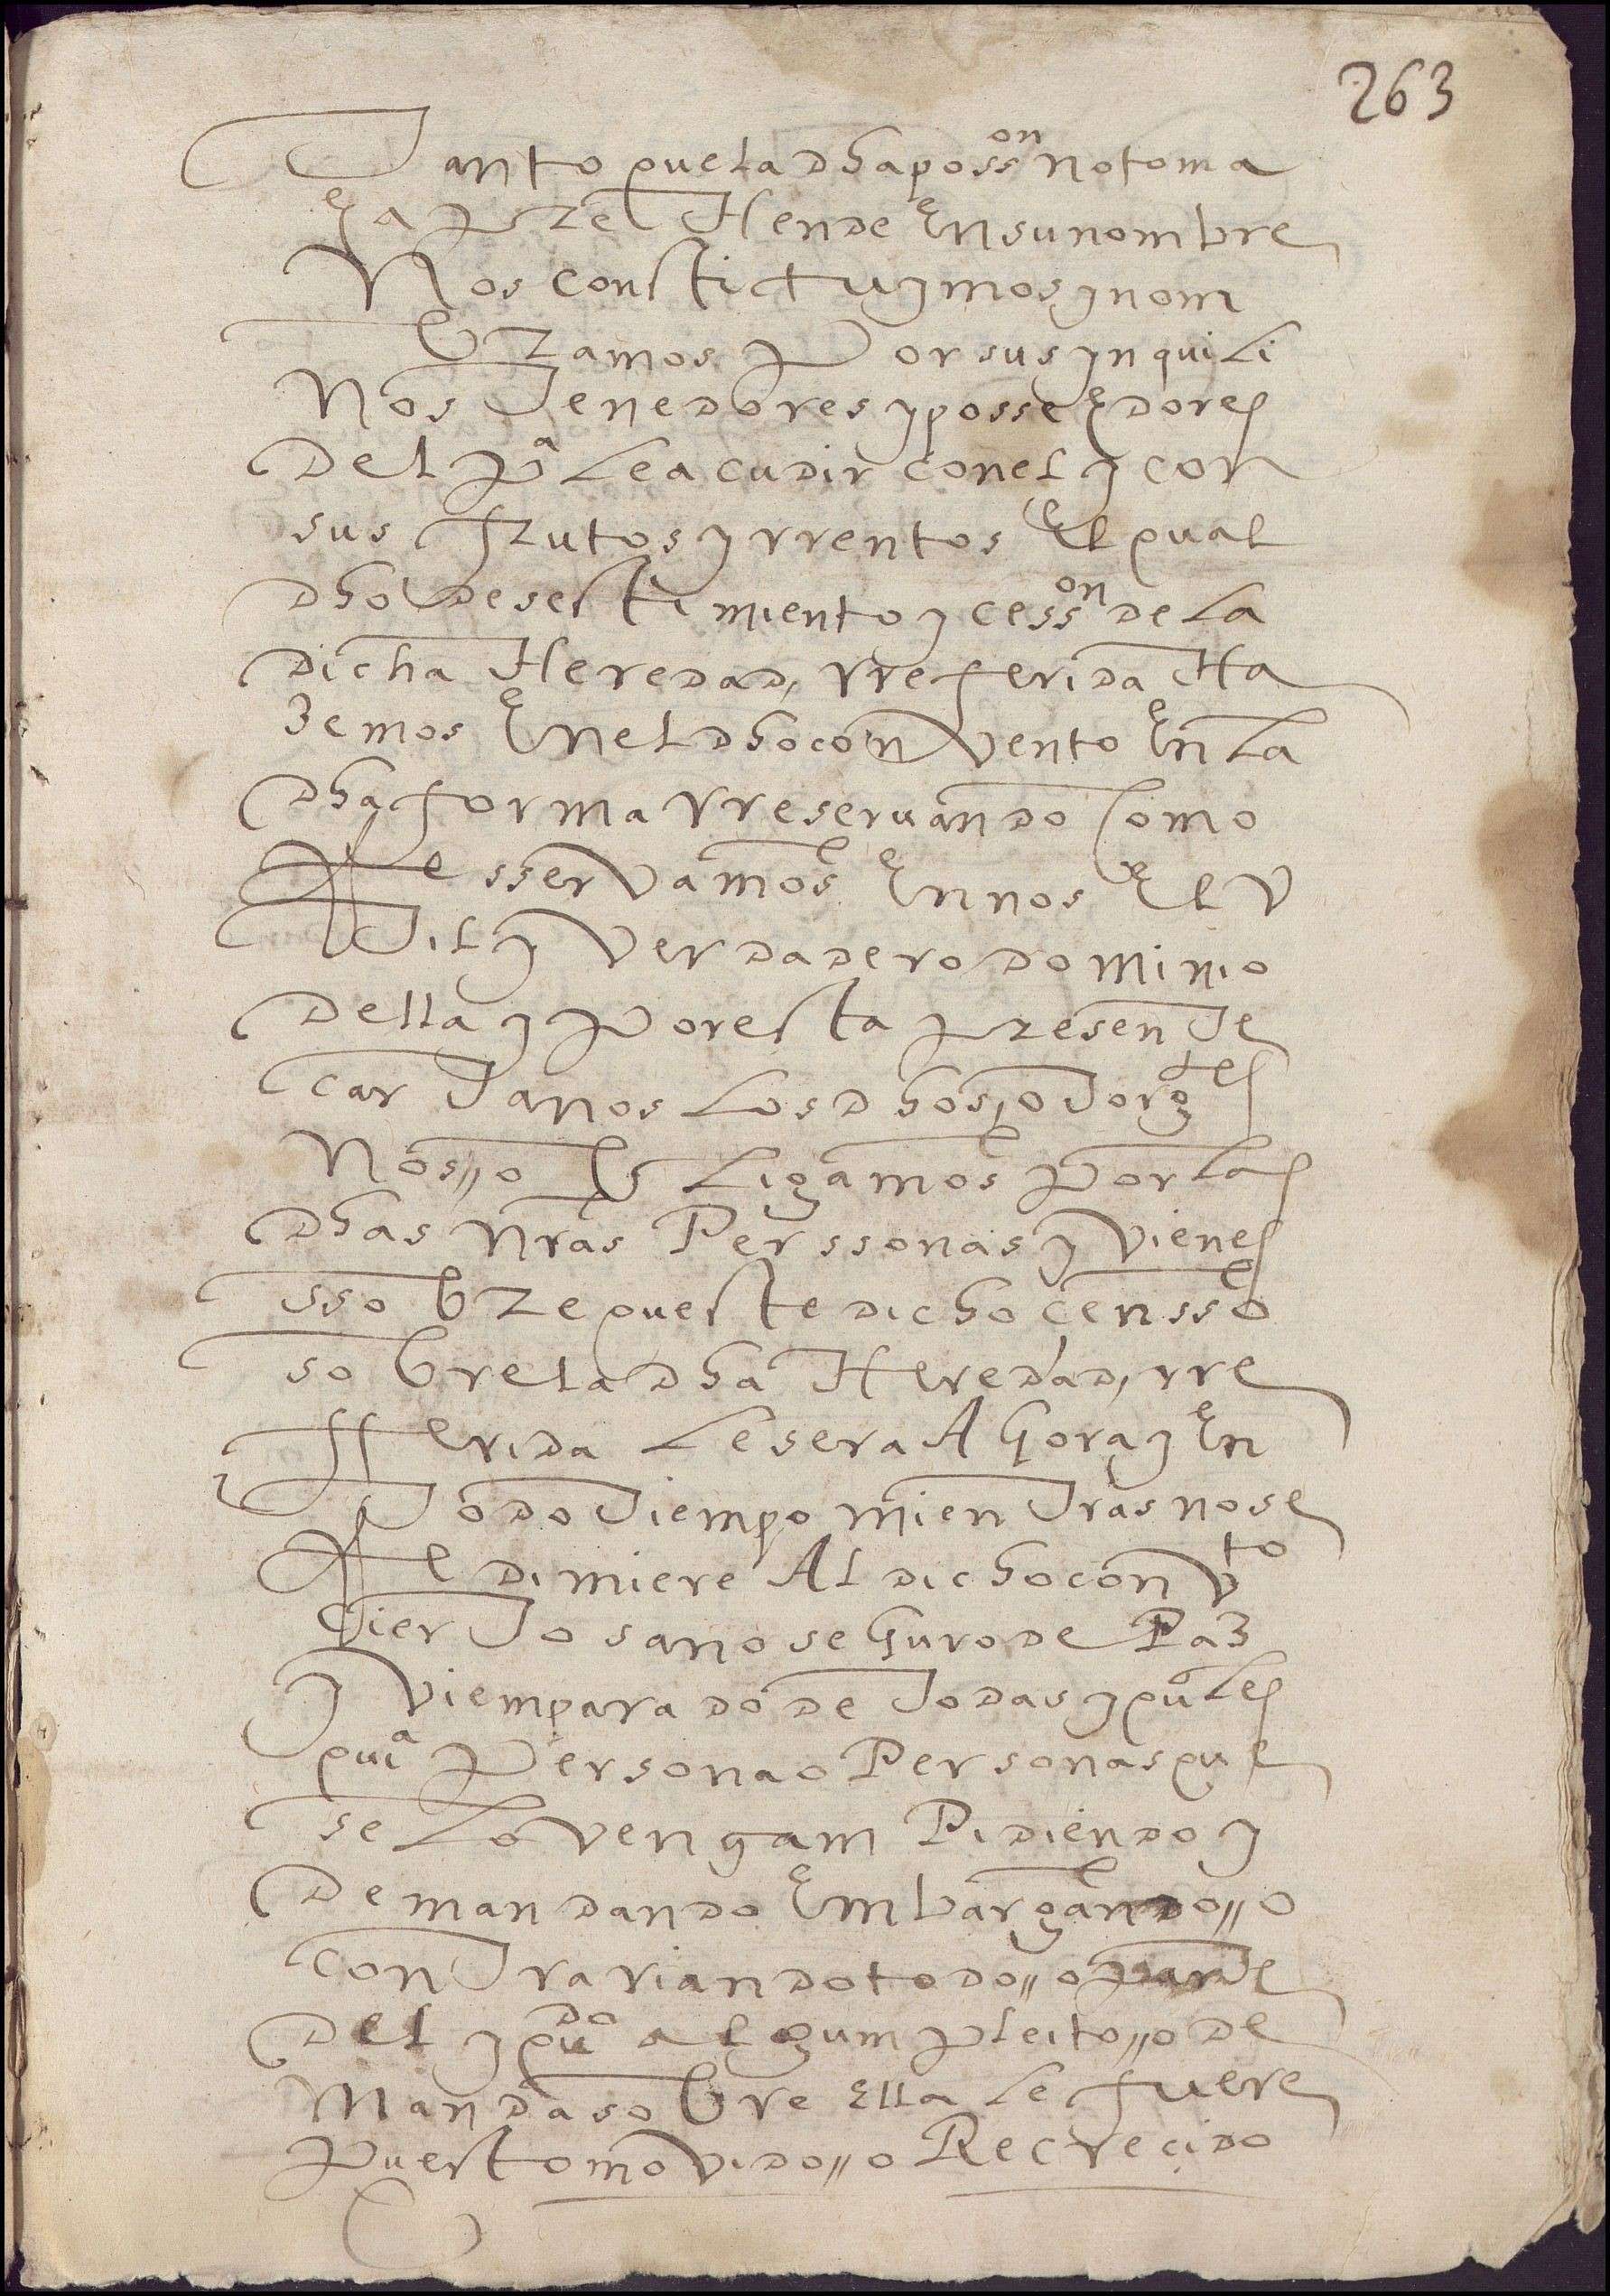 263
Tanto que la dha posson no toma
E aprehende En su nombre
Nos constictuymos y nom
bramos Por sus ynquili
Nos Tenedores y posseEdores
Del pa Le acudir con el y con
sus frutos y rrentos El qual
dho desestimiento y cesson de La
dicha Heredad, rreferida Ha
zemos En el dho convento En La
dha forma rreseruando Como
Resservamos En nos El V
Til y Verdadero dominio
Della y Por esta presenTe
carTa nos Los dhos, oTorgtes
Nos // o bligamos Por Las
dhas nras Perssonas y vienes
sso bre queste dicho censso
so bre La dha Heredad, rre
fferida Le sera A Gora y En
Todo Tiempo mienTras no se
Redimiere Al dicho convto
CierTo sano seGuro de Paz
y viem parado de Todas y quales
quia Persona o Personas que
se Lo vengam Pidiendo y
Demandando Embargando // o
conTrariando todo // o parTe
Del y qudo algum pleito // o de
Manda sobre Ella Le fuere
Puesto movido // o Recrecido